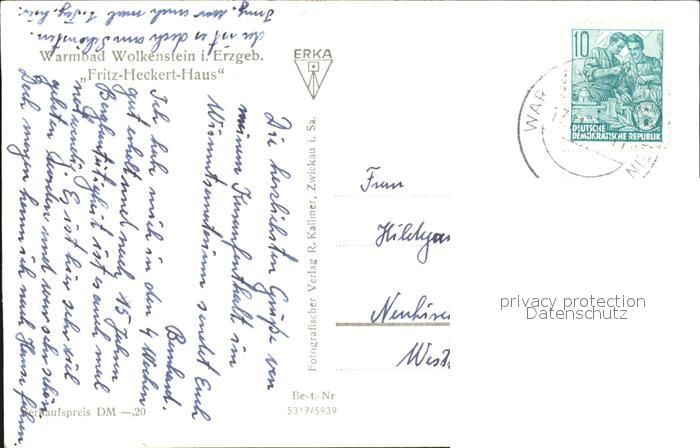 Warmbad Wolkenstein i. Erzgeb.
„Fritz-Heckert-Haus"
ERKA
10
DEUTSCHE
DEMOKRATISCHE REPUBLIK
WAR
Die herzlichsten Grüße von
meinem Kuraufenthalt im
sendet Euch
Bernhard.
Ich habe mich in den 4 Wochen
gut erholt und nach 15 Jahren
Berufstätigkeit ist es auch mal
notwendig. Es ist hier sehr viel
geboten worden und war sehr schön
Doch morgen kann ich nach Hause fahren,
da ist es doch am Schönsten.
Fotografischer Verlag R. Kallmer, Zwickau i. Sa.
Frau
Hildegar
Neuhäuse
West
Best.-Nr
5317/5939
Verkaufspreis DM —,20
privacy protection
Datenschutz